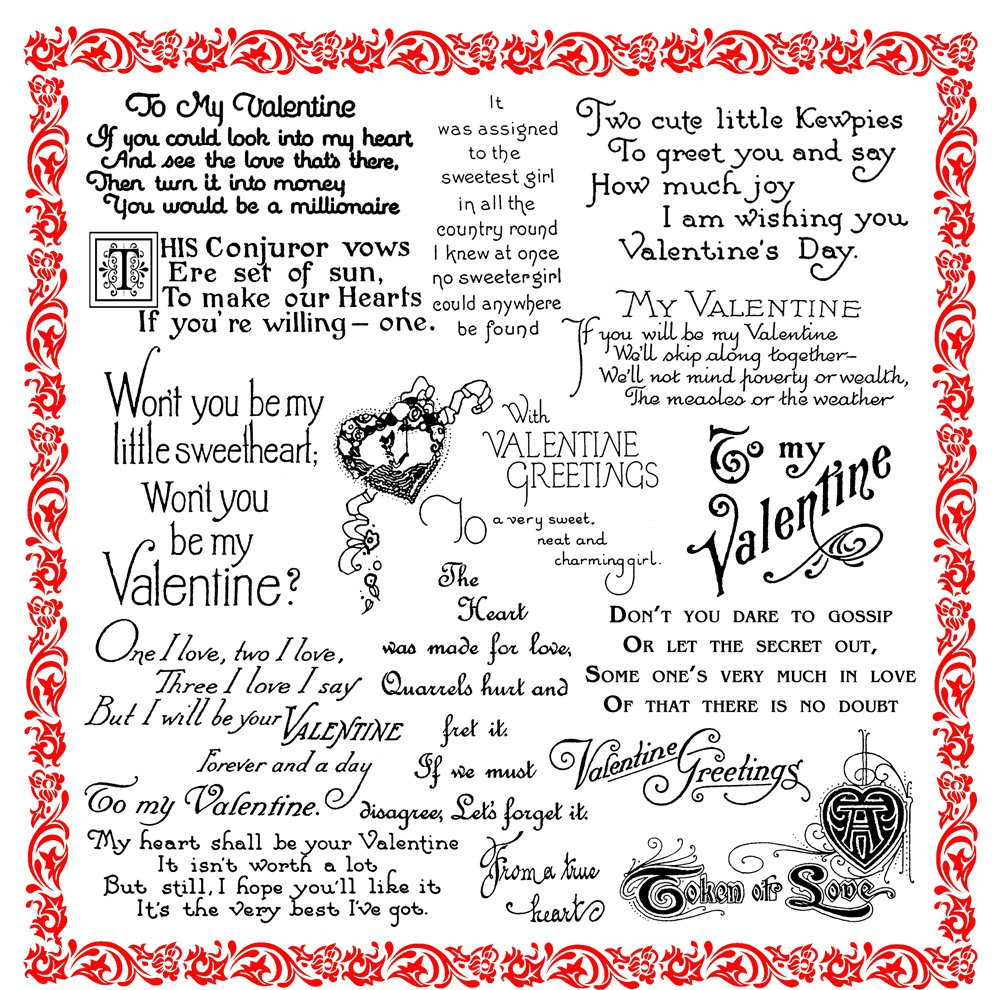 To My Valentine
If you could look into my heart
And see the love that's there,
Then turn it into money
You would be a millionaire
It
was assigned
to the
sweetest girl
in all the
country round
I knew at once
no sweeter girl
could anywhere
be found
Two cute little Kewpies
To greet you and say
How much joy
I am wishing you
Valentine's Day.
THIS Conjuror vows
Ere set of sun,
To make our Hearts
If you're willing – one.
MY VALENTINE
If you will be my Valentine
We'll skip along together –
We'll not mind poverty or wealth,
The measles or the weather
Won't you be my
little sweetheart;
Won't you
be my
Valentine?
With
VALENTINE
GREETINGS
To a very sweet,
neat and
charming girl.
To my
Valentine
The
Heart
was made for love,
Quarrels hurt and
fret it.
If we must
disagree, Let's forget it.
DON'T YOU DARE TO GOSSIP
OR LET THE SECRET OUT,
SOME ONE'S VERY MUCH IN LOVE
OF THAT THERE IS NO DOUBT
One I love, two I love,
Three I love I say
But I will be your VALENTINE
Forever and a day
To my Valentine.
Valentine Greetings
My heart shall be your Valentine
It isn't worth a lot
But still, I hope you'll like it
It's the very best I've got.
From a true
heart
A
Token of Love